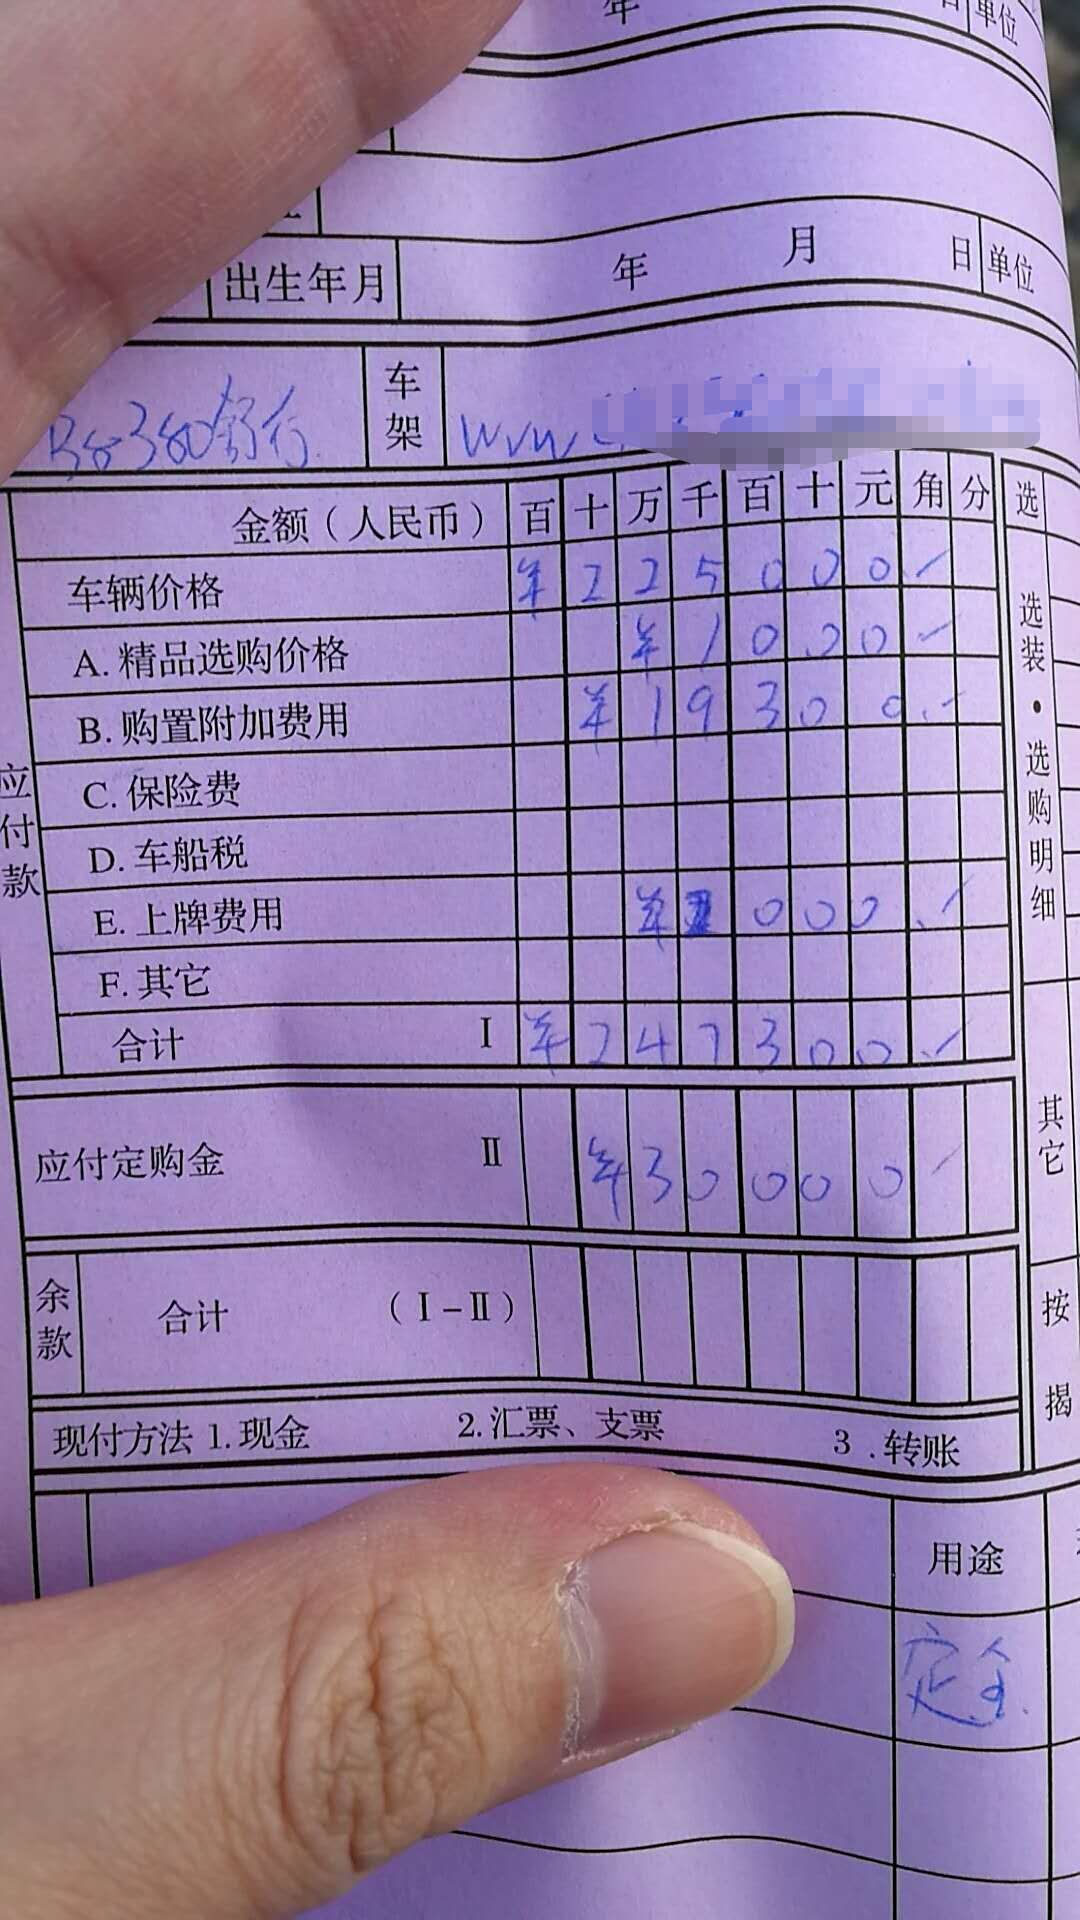 年 日 单位
出生年月 年 月 日 单位
B8 380舒行 车架 WVW
金额（人民币） 百 十 万 千 百 十 元 角 分 选
应付款
车辆价格 ¥ 2 2 5 0 0 0
A. 精品选购价格 ¥ 1 0 0 0
B. 购置附加费用 ¥ 1 9 3 0 0
C. 保险费
D. 车船税
E. 上牌费用 ¥ 0 0 0
F. 其它
合计 Ⅰ ¥ 2 4 7 3 0 0
选装·选购明细
应付定购金 Ⅱ ¥ 3 0 0 0 0
其它
余款 合计 （Ⅰ-Ⅱ）
按揭
现付方法 1.现金 2.汇票、支票 3.转账
用途
定金